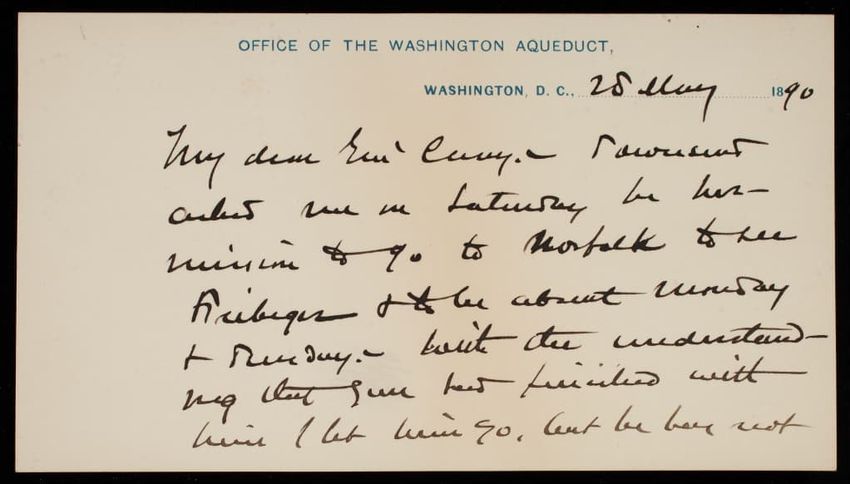 OFFICE OF THE WASHINGTON AQUEDUCT,
WASHINGTON, D. C., 28 May 1890
My dear Genl Casey. - Townsend
asked me on Saturday for per-
mission to go to Norfolk to see
& to be absent Monday
& Tuesday. - With the understand-
ing that you had finished with
him I let him go, but he has not